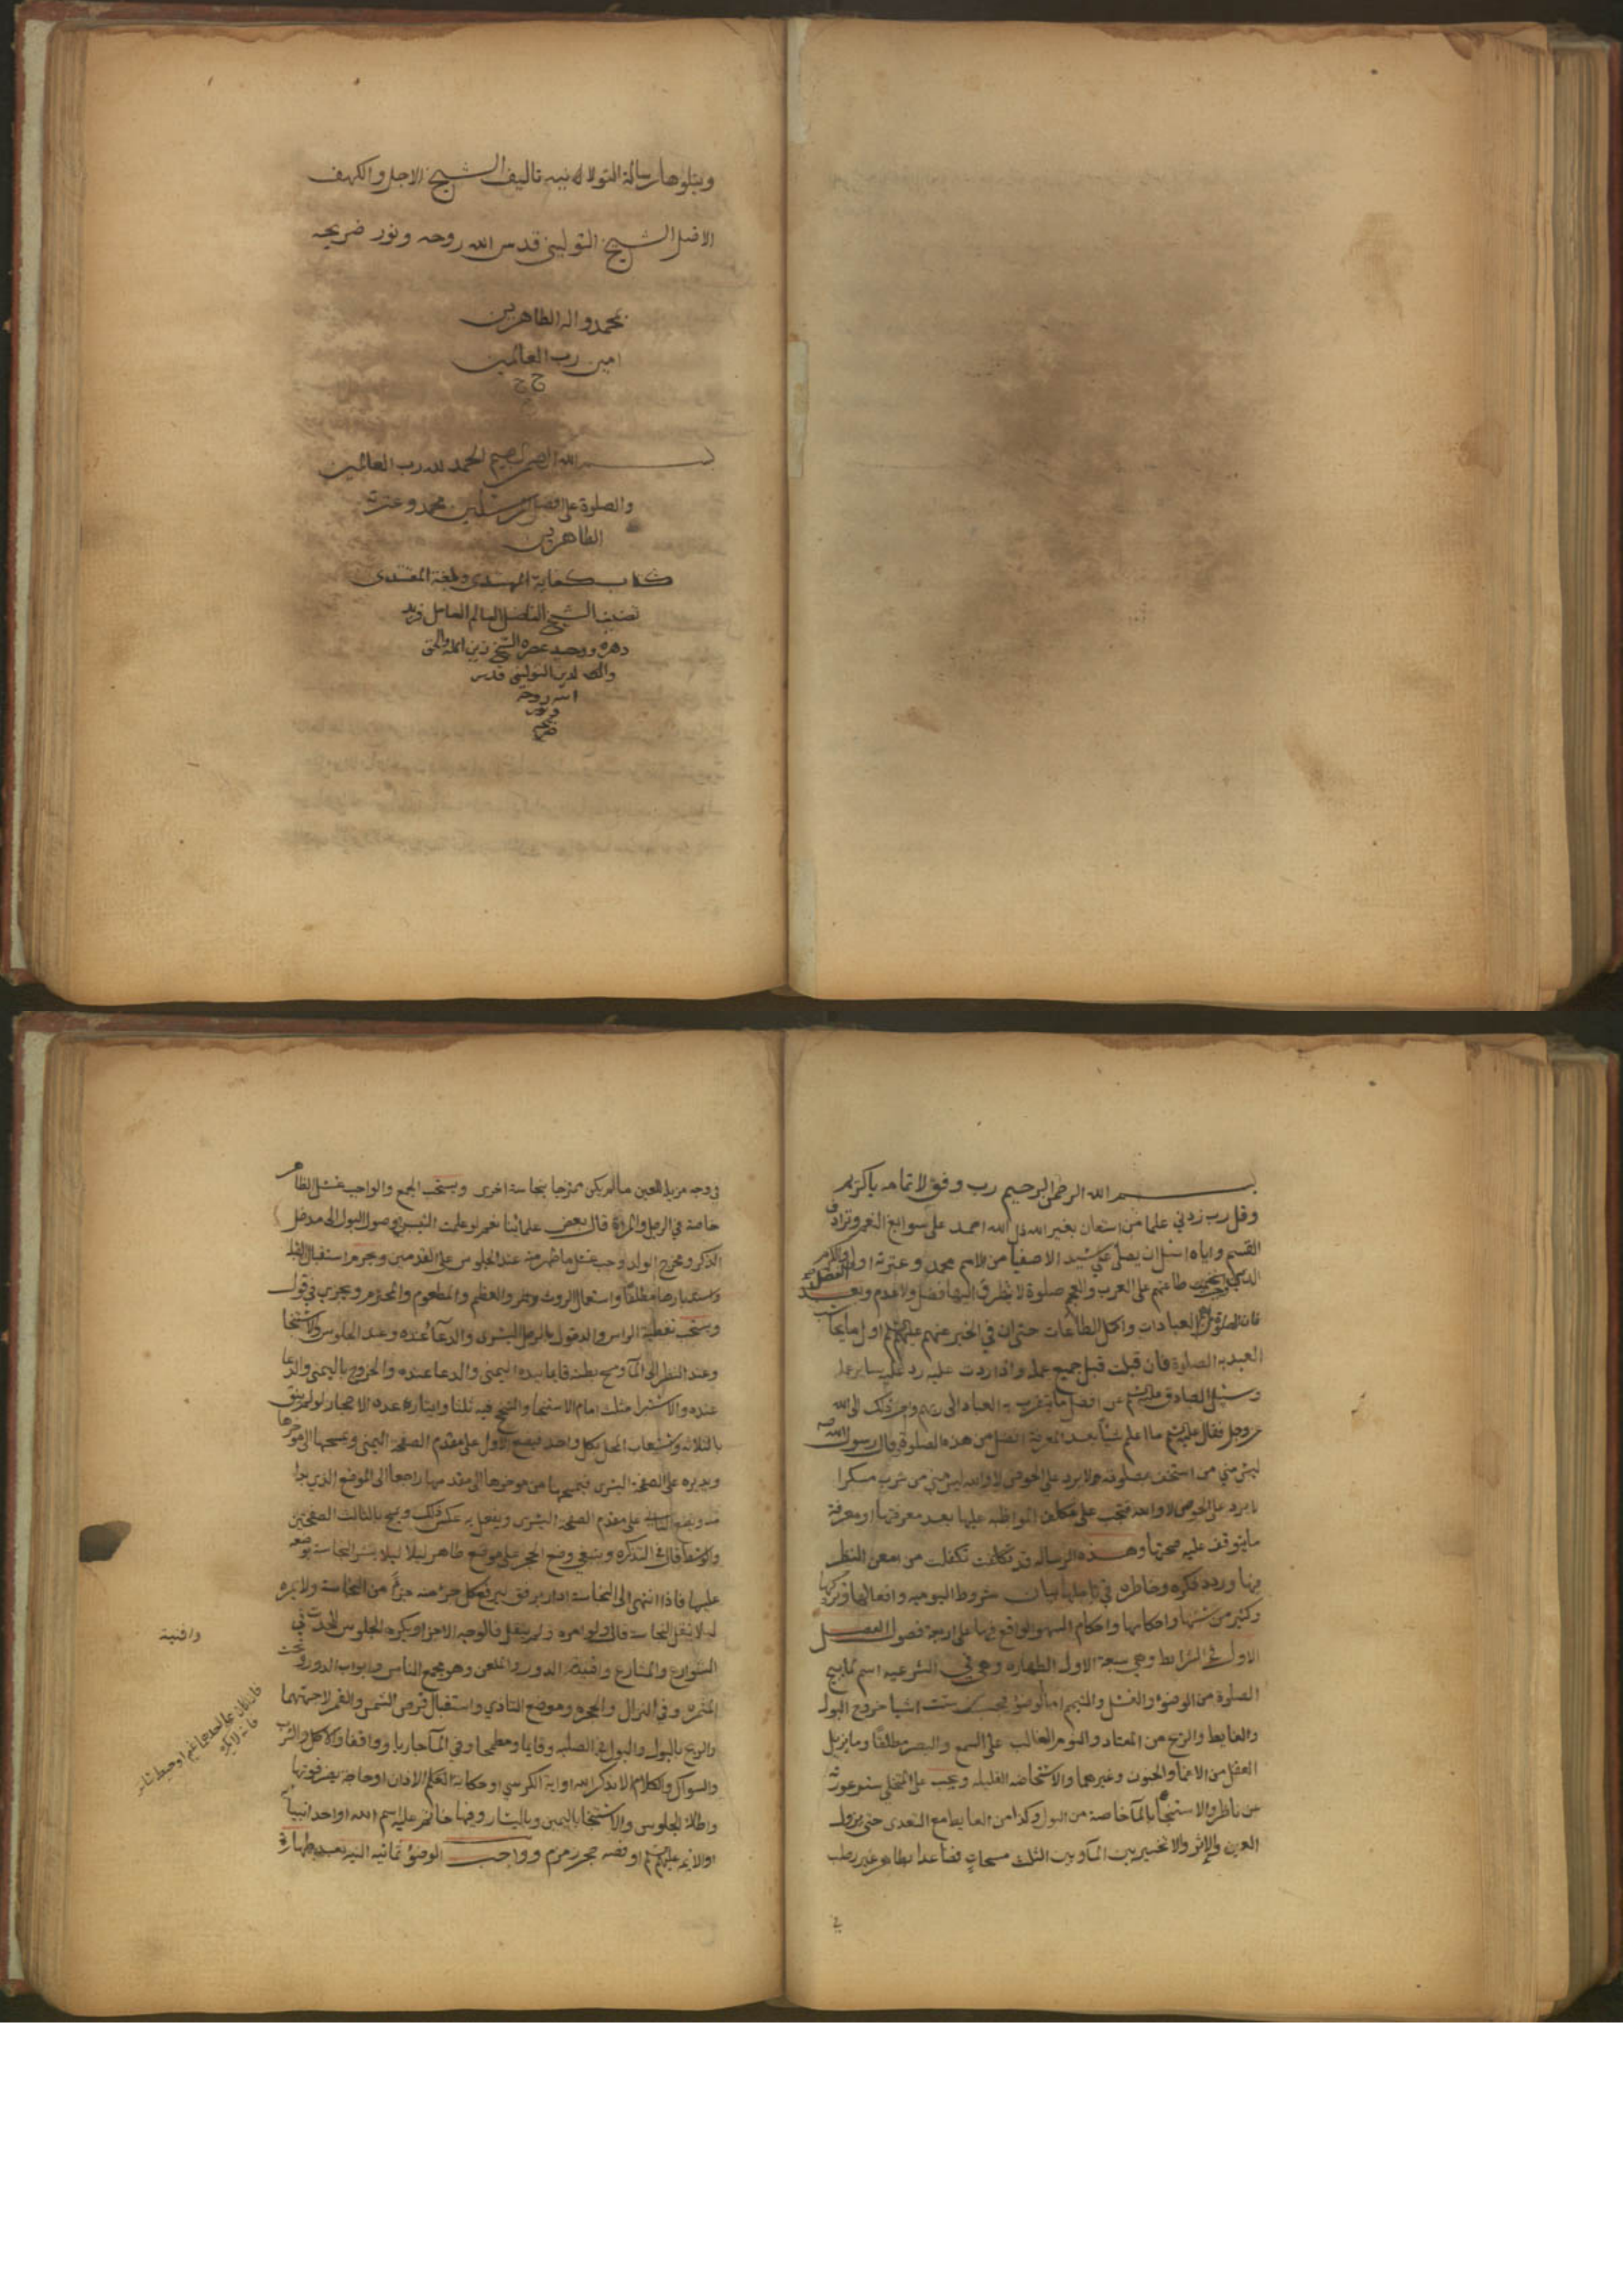 ويتلوها رسالة التولانيه تاليف الشيخ الاجل والكهف
الاضل الشيخ التوليني قدس الله روحه ونور ضريحه
بمحمد واله الطاهرين
امين رب العالمين
بسم الله الرحمن الرحيم الحمد لله رب العالمين
والصلوة على المرسلين محمد وعترته
الطاهرين
كتاب كفاية المهتدى وبلغة المقتدى
تصنيف الشيخ الفاضل العالم العامل فريد
دهره ووحيد عصره الشيخ زين الملة والحق
والدين التوليني قدس
الله روحه
ونور
ضريحه
بسم الله الرحمن الرحيم رب وفق لاتمامه ياكريم
وقل رب زدني علما من استعان بغير الله ذل الله احمد على سوابغ النعم وترادف
القسم واياه اسئل ان يصلى على سيد الاصفيا من الامم محمد وعترته
طاعتهم على العرب والعجم صلوة لا يتطرق اليها فصل ولا عدم وبعد
فان الصلوة افضل العبادات واكمل الطاعات حتى ان في الخبر عنهم عليهم السلم اول ما يحاسب
العبد به الصلوة فان قبلت قبل جميع عمله واذا ردت عليه رد عليه ساير عمله
وسئل الصادق عليه السلم عن افضل ما يتقرب به العباد الى ربهم واحب ذلك الى الله
عز وجل فقال عليه السلم ما اعلم شيأ بعد المعرفة افضل من هذه الصلوة وقال رسول الله صه
ليس مني من استخف بصلوته ولا يرد على الحوض لا والله ليس مني من شرب مسكرا
لا يرد على الحوض لا والله فتجب على مكلف المواظبه عليها بعد معرفتها ومعرفة
ما يتوقف عليه صحتها وهذه الرساله قد تكفلت من امعن النظر
فيها وردد فكره وخاطره في تاملها بيان شروط اليوميه وافعالها وتركها
وكثير من سننها واحكامها واحكام السهو الواقع فيها على اربعة فصول الفصل
الاول في الشرائط وهي سبعة الاول الطهاره وهي في الشرعيه اسم لما يبيح
الصلوة من الوضوء والغسل والتيمم اما الوضوء يجب من ستت اشيا خروج البول
والغايط والريح من المعتاد والنوم الغالب على السمع والبصر مطلقا وما يزيل
العقل من الاغما والجنون وغيرهما والاستحاضه القليله ويجب على المتخلي ستر عورته
عن ناظر والاستنجا بالمآ خاصة من البول وكذا من الغايط مع التعدى حتى يزول
العين والاثر والا تخيير بين المآ وبين الثلث مسحات فصاعدا بطاهر غير رطب
في
في وجه مزيل للعين ما لم يكن ممتزجا بنجاسة اخرى ويستحب الجمع والواجب غسل الظاهر
خاصة في الرجل والمرءة قال بعض علمائنا نعم لو علمت الثيب وصول البول الى مدخل
الذكر ومخرج الولد وجب غسل ما ظهر منه عند الجلوس على القدمين ويحرم استقبال القبلة
واستدبارها مطلقا واستعمال الروث والعظم والمطعوم والمحترم ويجزي في قول
ويستحب تغطية الراس والدخول بالرجل اليسرى والدعآ عنده وعند الجلوس والاستنجا
وعند النظر الى المآ ومسح بطنه قايما بيده اليمنى والدعا عنده والخروج باليمنى والدعا
عنده والاستبرا مثلث امام الاستنجا والنتيح فيه ثلثا وايتاره عدد الاحجار لو لم ينق
بالثلاثه واستيعاب المحل بكل واحد فيضع الاول على مقدم الصفحة اليمنى ويمسحها الى موخرها
ويديره على الصفحة اليسرى فيمسحها من موخرها الى مقدمها راجعا الى الموضع الذي بدا
منه ويضع الثانية على مقدم الصفحة اليسرى ويفعل به عكس ذلك ويمسح بالثالث الصفحتين
والوسط قال في التذكره وينبغي وضع الحجر على موضع طاهر ليلا ينشر النجاسة بوضعه
عليها فاذا انتهى الى النجاسة ادار برفق ليرفع كل جزء منه جزءا من النجاسة ولا يمره
ليلا ينقل النجاسة قال ولو امره ولم ينقل فالوجه الاجزا ويكره الجلوس للحدث في
الشوارع والمشارع وافنية الدور والملعن وهو مجمع الناس وابواب الدور وتحت
المثمره وفي النزال والجحره وموضع التاذي واستقبال قرص الشمس والقمر لا جهتهما
والريح بالبول والبول في الصلبه وقايما ومطمحا وفي المآ جاريا وواقفا والاكل والشرب
والسواك والكلام الا بذكر الله او اية الكرسي او حكاية الاذان او حاجة يضر فوتها
واطالة الجلوس والاستنجا باليمين وباليسار وفيها خاتم عليه اسم الله او احد انبيائه
او الائمه عليهم السلم او فصه حجر زمزم وواجب الوضوء ثمانيه النيه بعد طهارة
وافنية